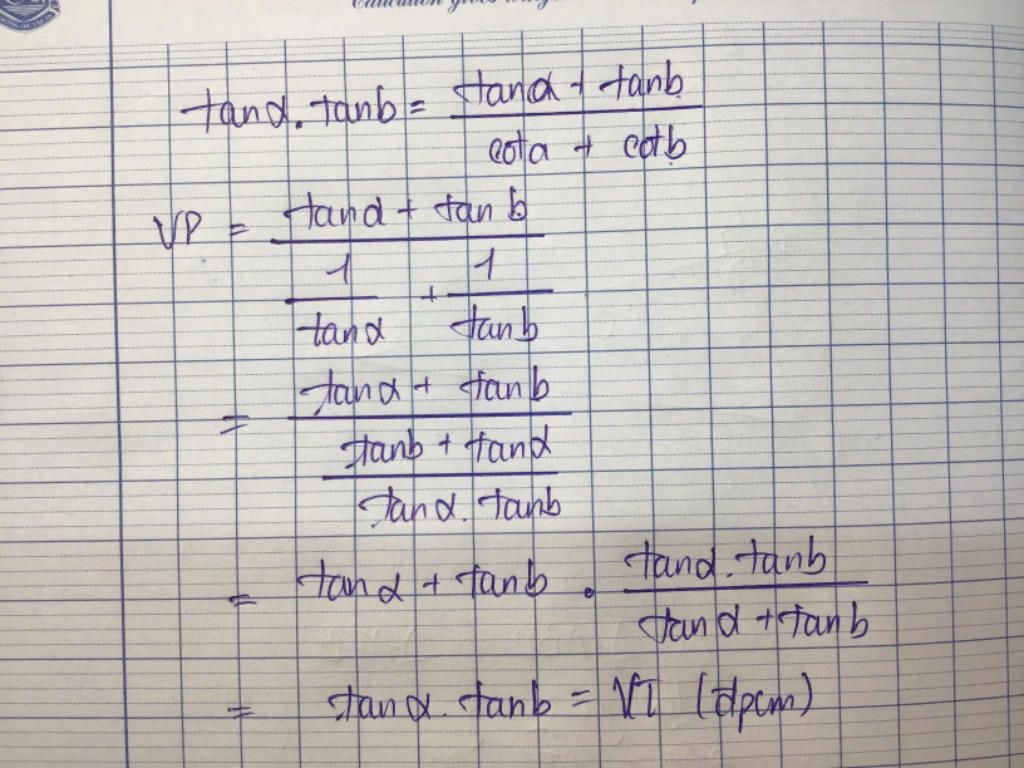 tanα. tanb = (tanα + tanb) / (cota + cotb)
VP = (tanα + tan b) / (1/tanα + 1/tanb)
= (tanα + tanb) / ((tanb + tanα) / (tanα. tanb))
= tanα + tanb . (tanα. tanb) / (tanα + tanb)
= tanα. tanb = VT (đpcm)